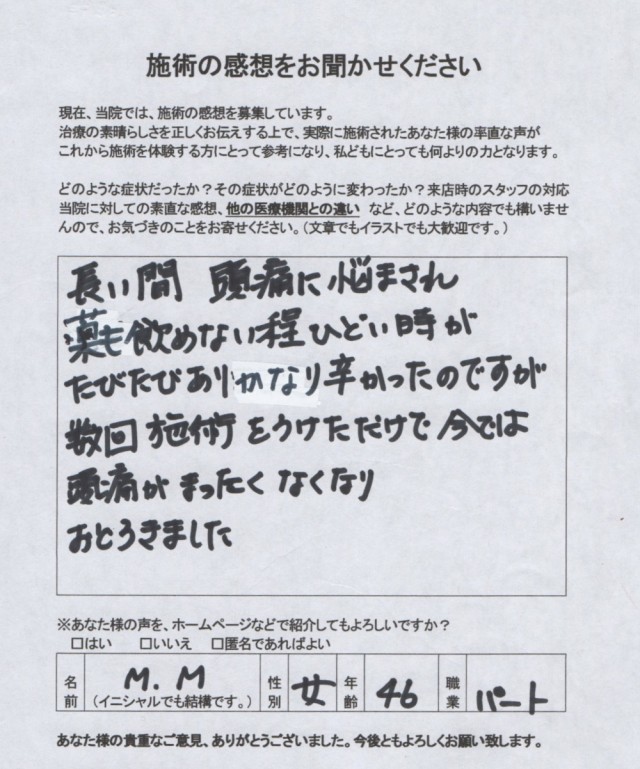 施術の感想をお聞かせください
現在、当院では、施術の感想を募集しています。
治療の素晴らしさを正しくお伝えする上で、実際に施術されたあなた様の率直な声が
これから施術を体験する方にとって参考になり、私どもにとっても何よりの力となります。
どのような症状だったか？その症状がどのように変わったか？来店時のスタッフの対応
当院に対しての素直な感想、他の医療機関との違い など、どのような内容でも構いませ
んので、お気づきのことをお寄せください。（文章でもイラストでも大歓迎です。）
長い間 頭痛に悩まされ
薬も飲めない程ひどい時が
たびたびありかなり辛かったのですが
数回 施術をうけただけで今では
頭痛が まったく なくなり
おとろきました
※あなた様の声を、ホームページなどで紹介してもよろしいですか？
□はい □いいえ □匿名であればよい
名前 M.M （イニシャルでも結構です。） 性別 女 年齢 46 職業 パート
あなた様の貴重なご意見、ありがとうございました。今後ともよろしくお願い致します。